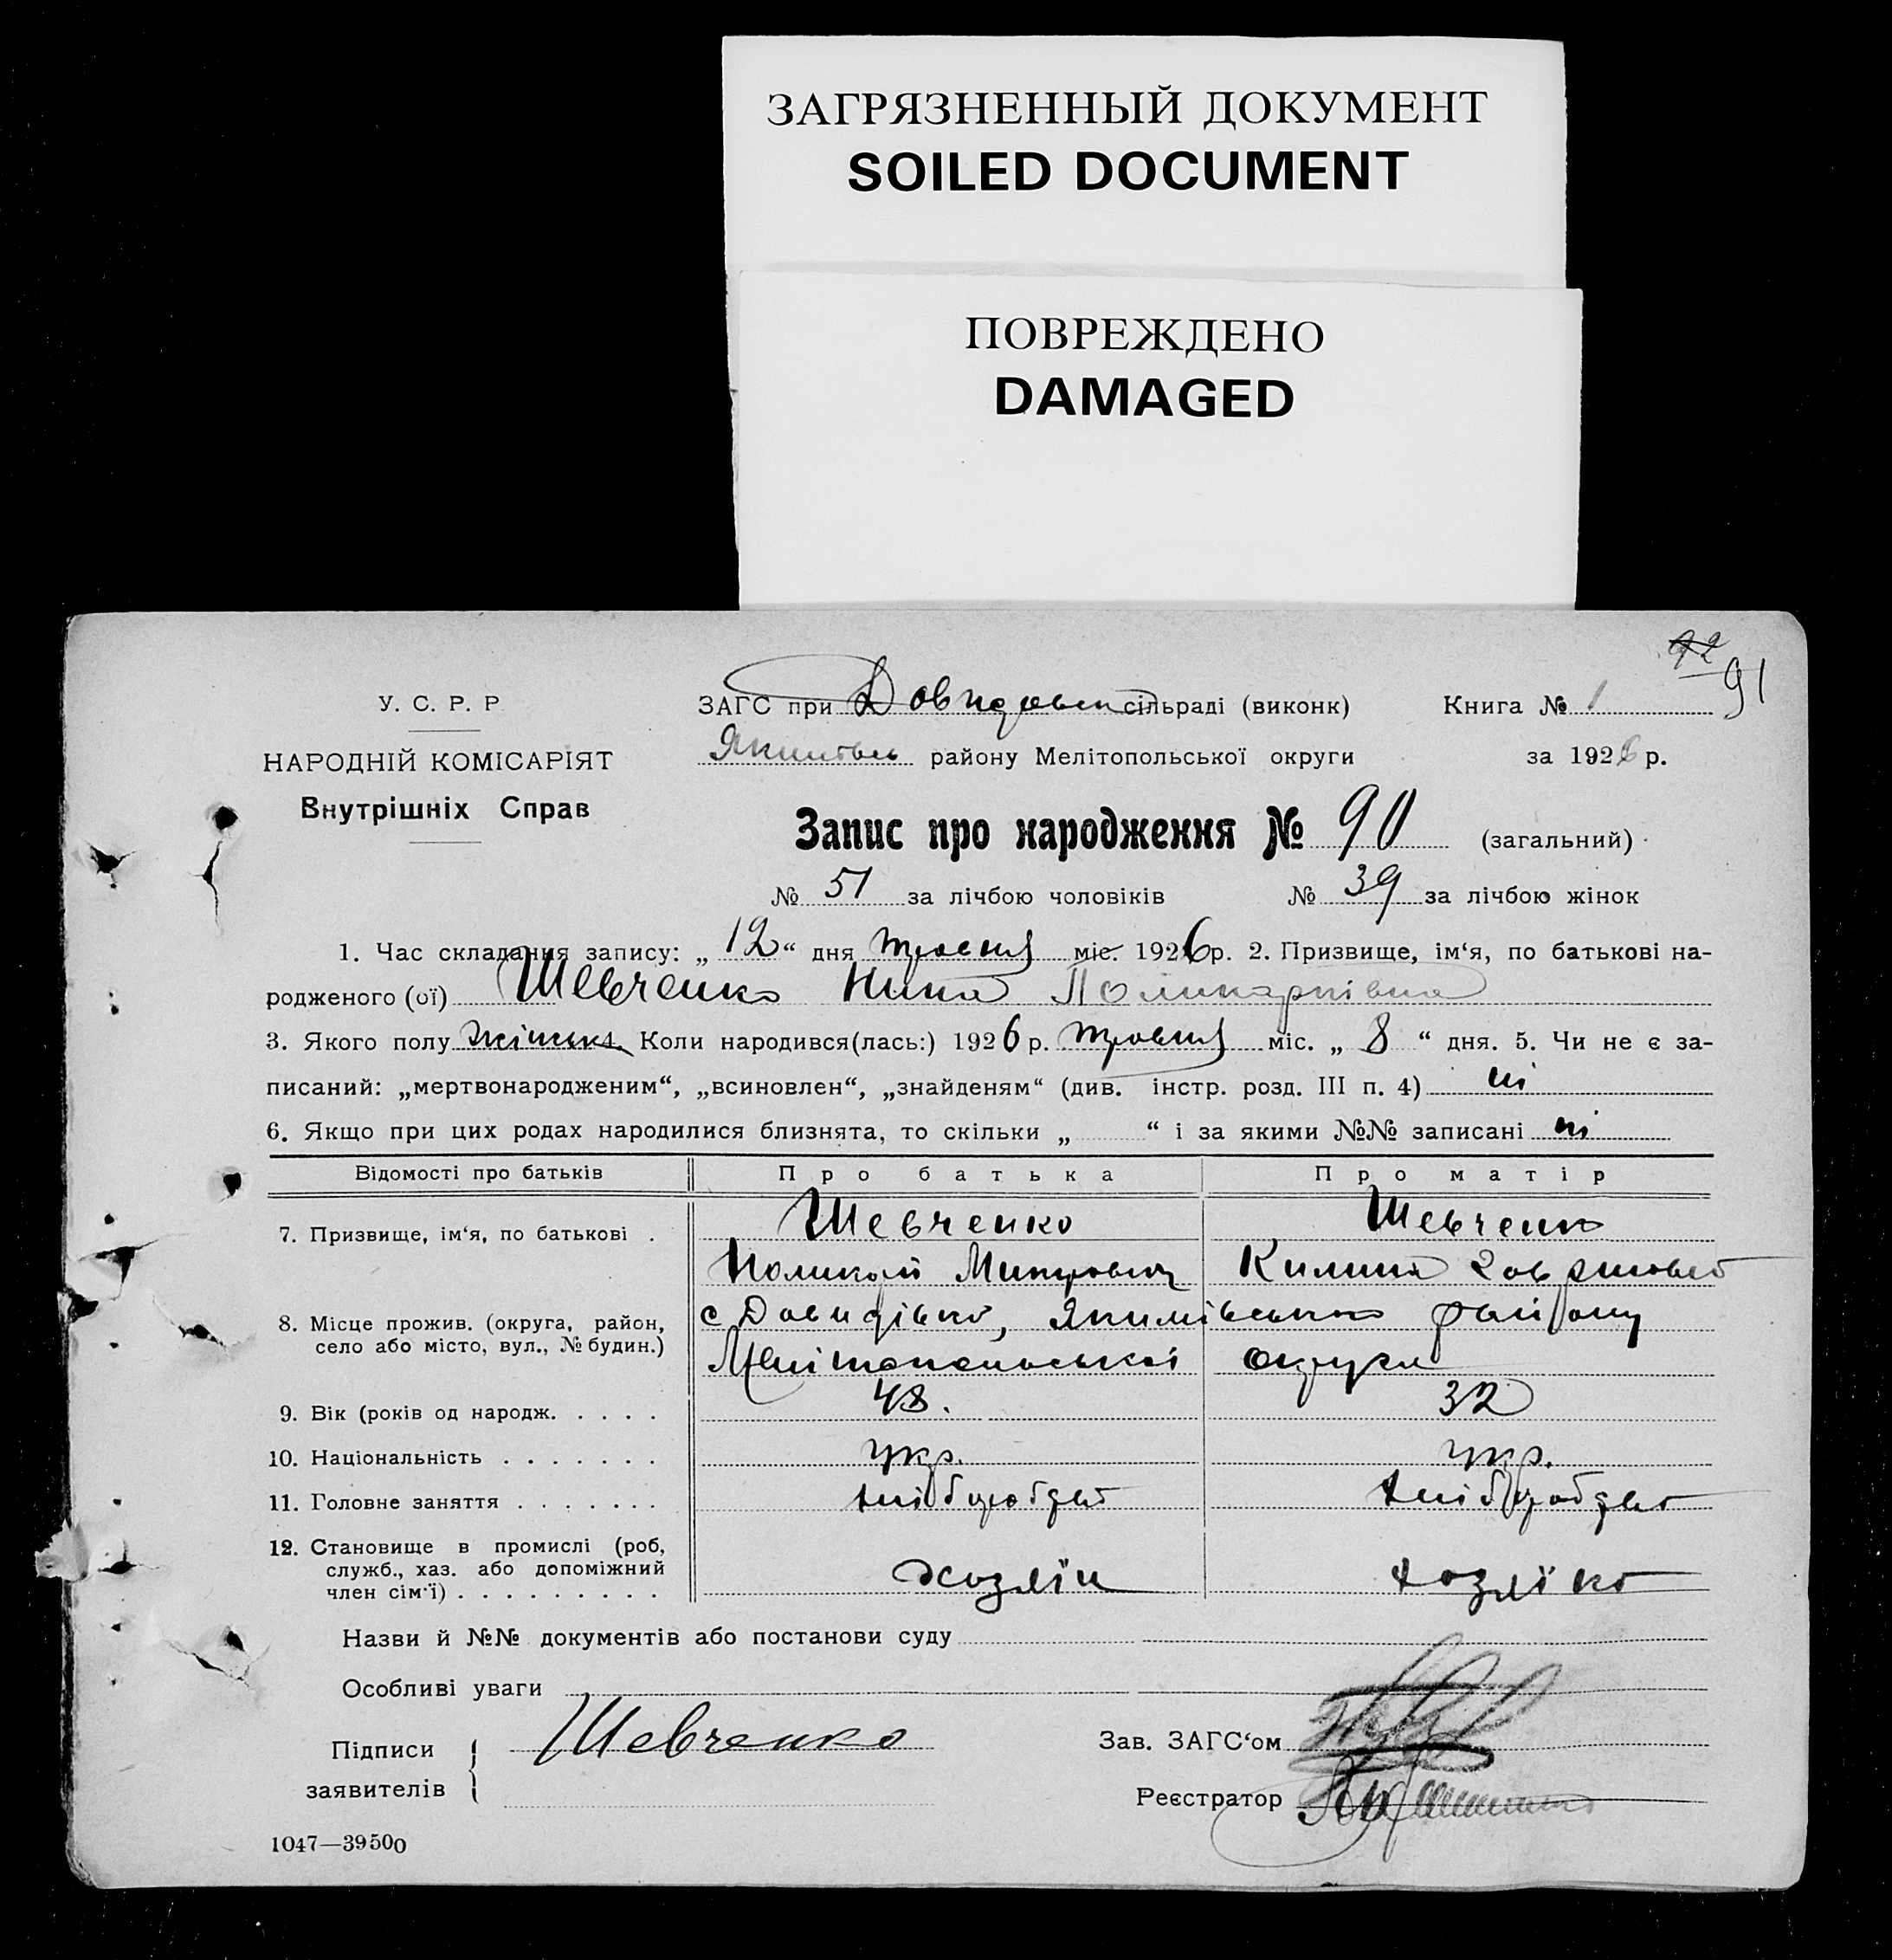 ЗАГРЯЗНЕННЫЙ ДОКУМЕНТ
SOILED DOCUMENT
ПОВРЕЖДЕНО
DAMAGED
92
91
У. С. Р. Р
ЗАГС при Довидовск сільраді (виконк) Книга № 1
НАРОДНІЙ КОМІСАРІЯТ
району Мелітопольської округи за 1926 р.
Внутрішніх Справ
Запис про народження № 90 (загальний)
№ 51 за лічбою чоловіків № 39 за лічбою жінок
1. Час складання запису: „ 12 “ дня травня міс. 1926 р. 2. Призвище, ім‘я, по батькові на-
родженого (ої) Шевченко Нина Поликарпівна
3. Якого полу жіноча 4. Коли народився(лась:) 1926 р. травня міс. „ 8 “ дня. 5. Чи не є за-
писаний: „мертвонародженим“, „всиновлен“, „знайденям“ (див. інстр. розд. III п. 4) ні
6. Якщо при цих родах народилися близнята, то скільки „ “ і за якими №№ записані ні
Відомості про батьків Про батька Про матір
7. Призвище, ім‘я, по батькові . Шевченко Шевченко
Килина
8. Місце прожив. (округа, район, с Давидівка, Якимівського району
село або місто, вул., № будин.) Мелітопольської округи
9. Вік (років од народж. . . . . 48. 32
10. Національність . . . . . . . укр. укр.
11. Головне заняття . . . . . . . хліборобство хліборобство
12. Становище в промислі (роб,
служб., хаз. або допоміжний
член сім‘ї) . . . . . . . . . хозяїн хозяїка
Назви й №№ документів або постанови суду
Особливі уваги
Підписи
заявителів
Шевченко
Зав. ЗАГС‘ом
Реєстратор
1047—39500